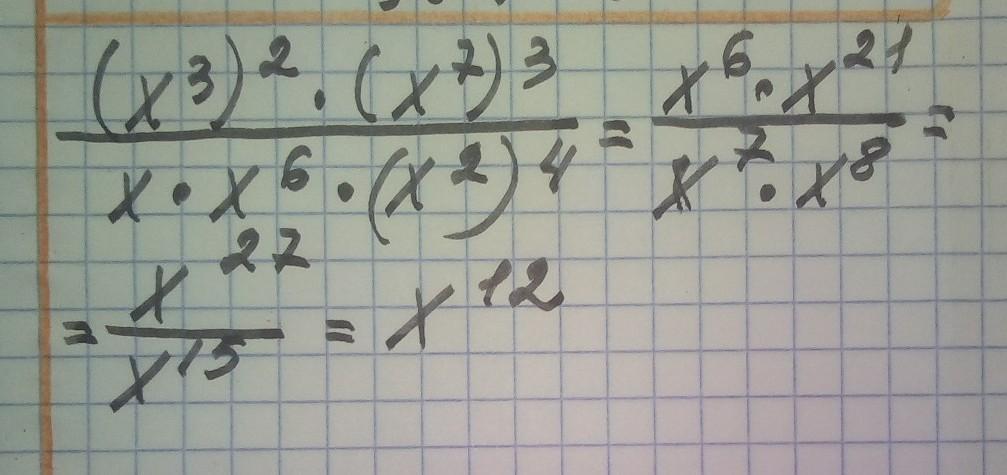 (x³)² · (x⁷)³ / x · x⁶ · (x²)⁴ = x⁶ · x²¹ / x⁷ · x⁸ =
= x²⁷ / x¹⁵ = x¹²